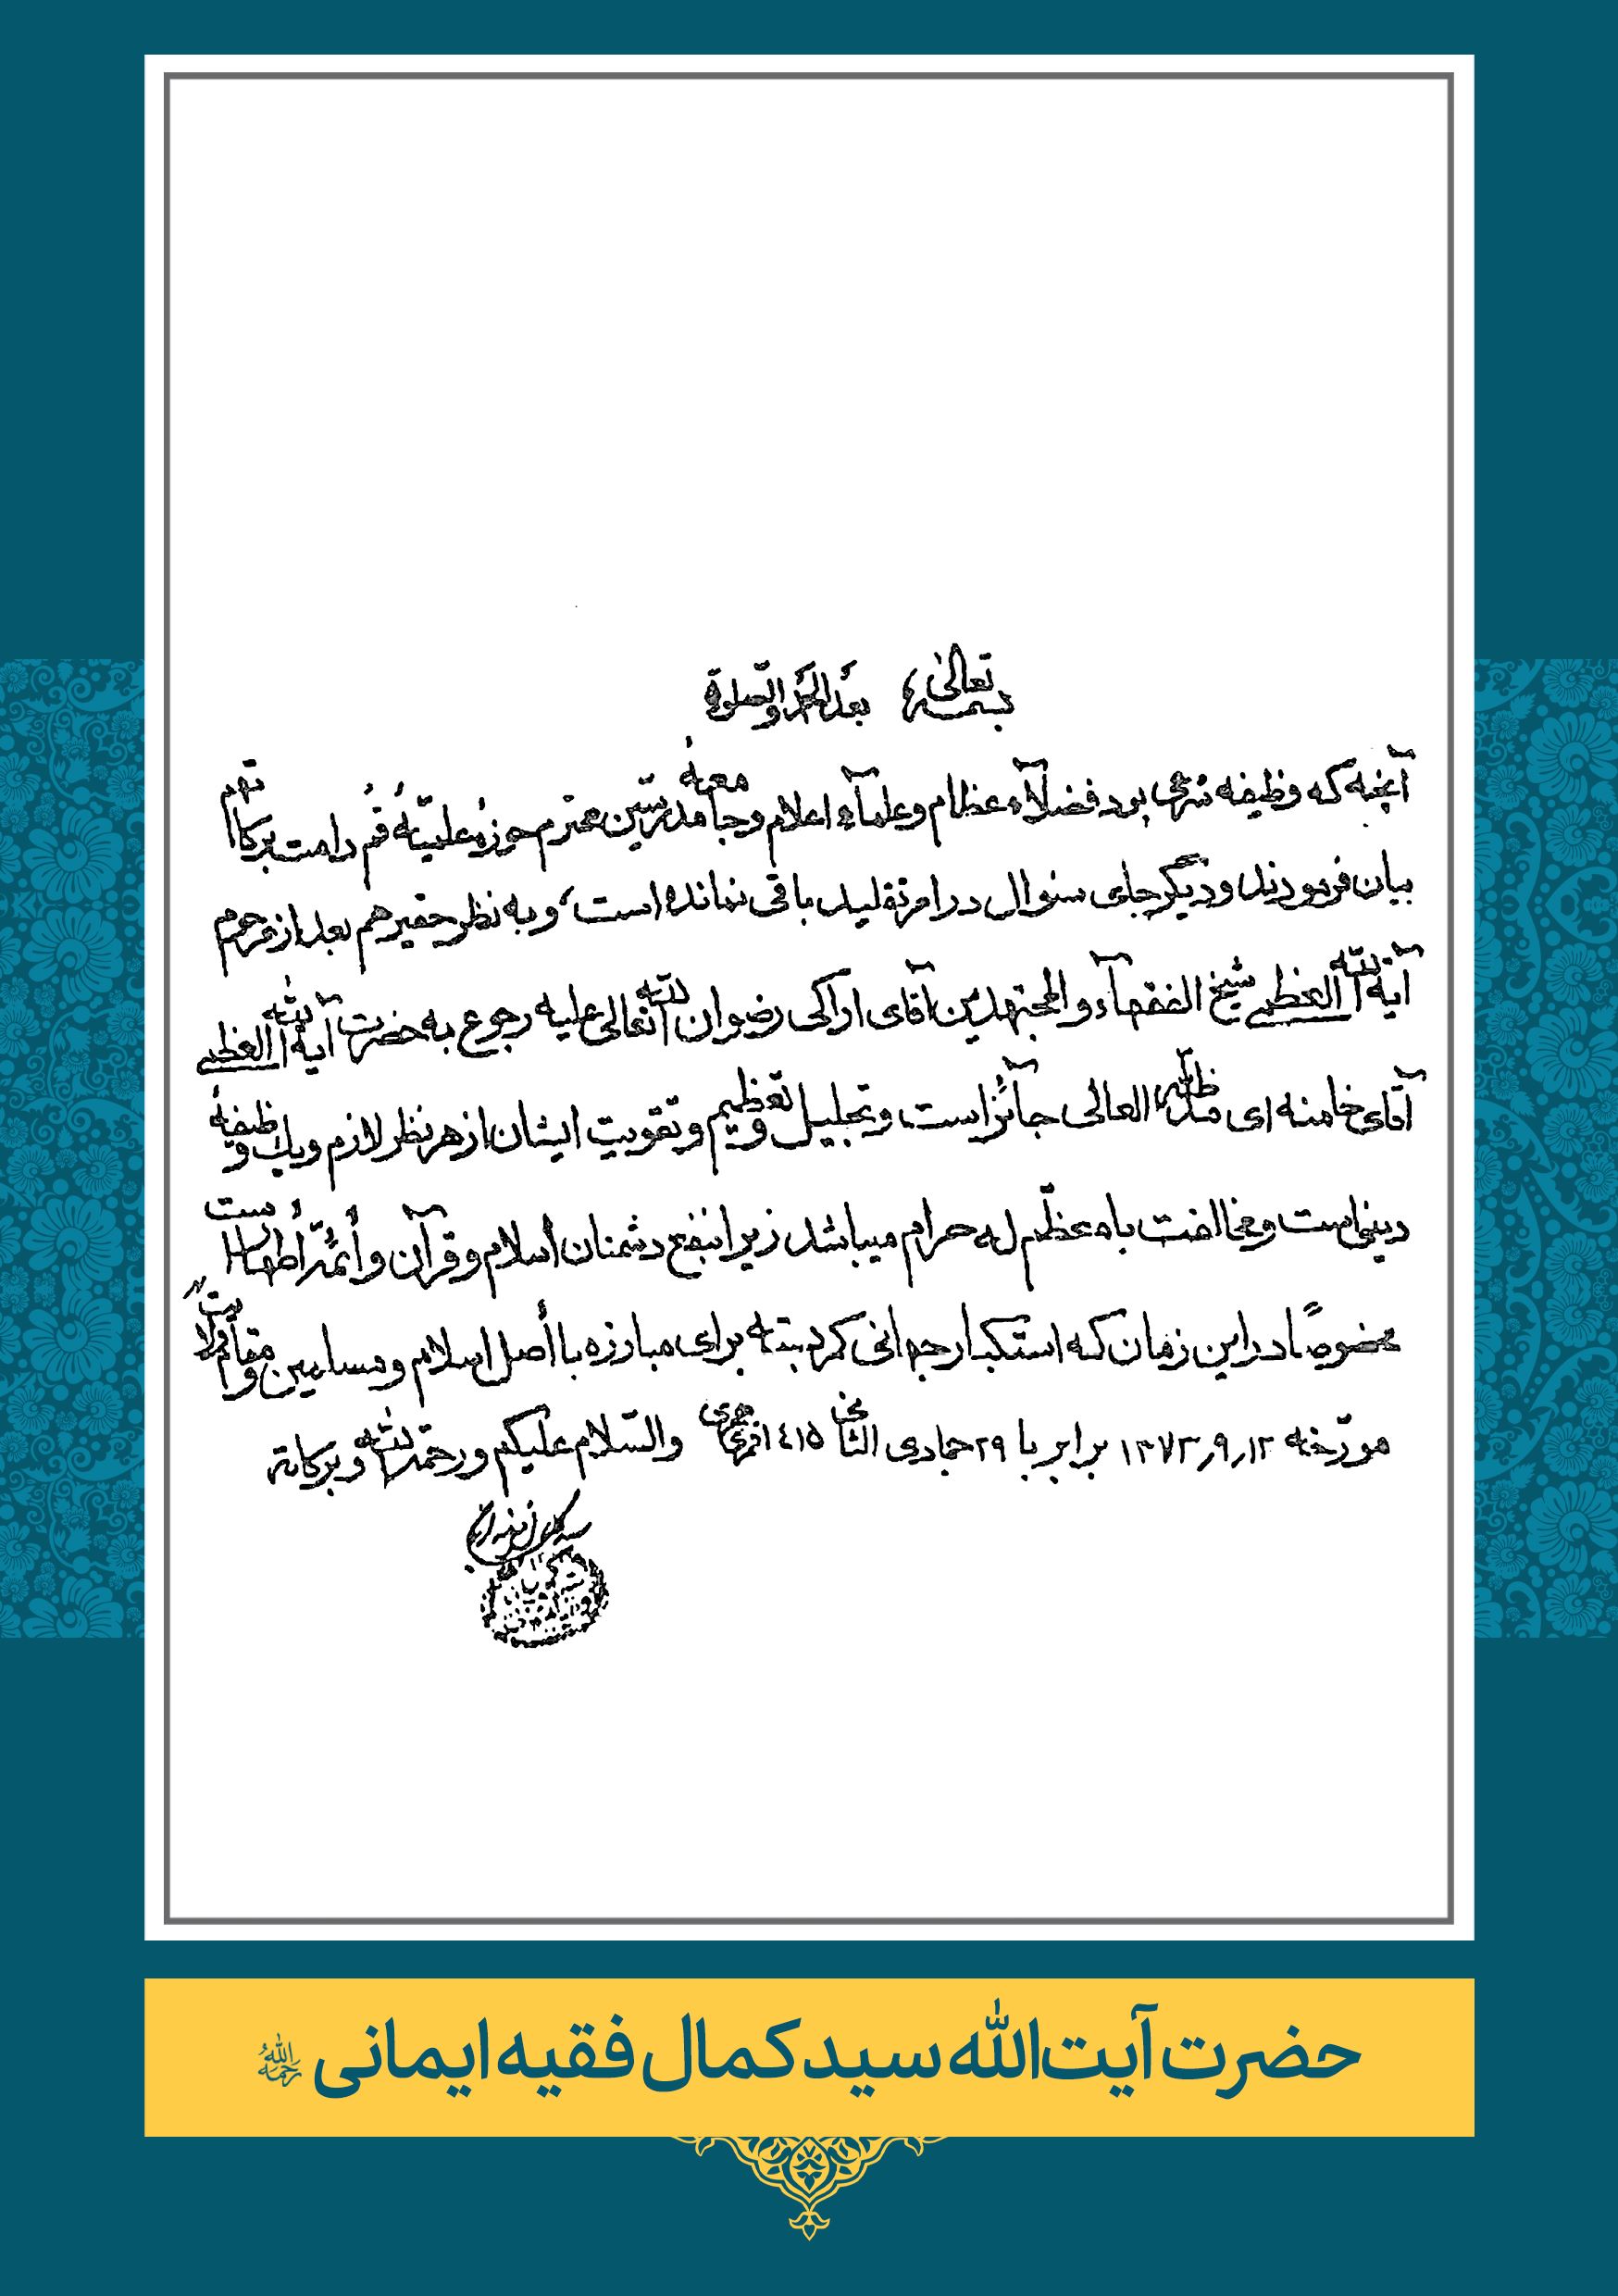 بسمه تعالی بعد الحمد والصلوة
آنچه که وظیفه شرعی بود فضلآء عظام و علمآء اعلام و جامعهٔ مدرّسین محترم حوزهٔ علمیّهٔ قُم دامت برکاتهم
بیان فرمودند و دیگر جای سئوال در امر تقلید باقی نمانده است، و به نظر حقیر هم بعد از مرحوم
آیة الله العظمی شیخ الفقهآء و المجتهدین آقای اراکی رضوان الله تعالی علیه رجوع به حضرت آیة الله العظمی
آقای خامنه ای مدّ ظلّه العالی جآئز است و تجلیل و تعظیم و تقویت ایشان از هر نظر لازم و یک وظیفهٔ
دینی است و مخالفت با معظّم له حرام میباشد زیرا بنفع دشمنان اسلام و قرآن و أئمّهٔ أطهار است
مخصوصًا در این زمان که استکبار جهانی کمر بسته برای مبارزه با أصل اسلام و مسلمین و مقام ولایت
مورّخه ۱۳٫۹٫۱۳۷۳ برابر با ۲۹ جمادی الثانی ۱٤۱۵ هجری قمری والسّلام علیکم و رحمة الله و برکاته
حضرت آیت‌الله سید کمال فقیه ایمانی رحمه‌الله